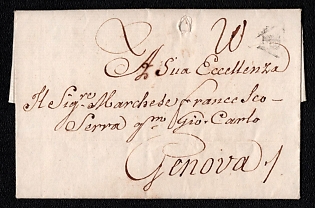 A Sua Eccellenza
Il Sig.re Marchese Francesco
Serra q.m Gio. Carlo
Genova